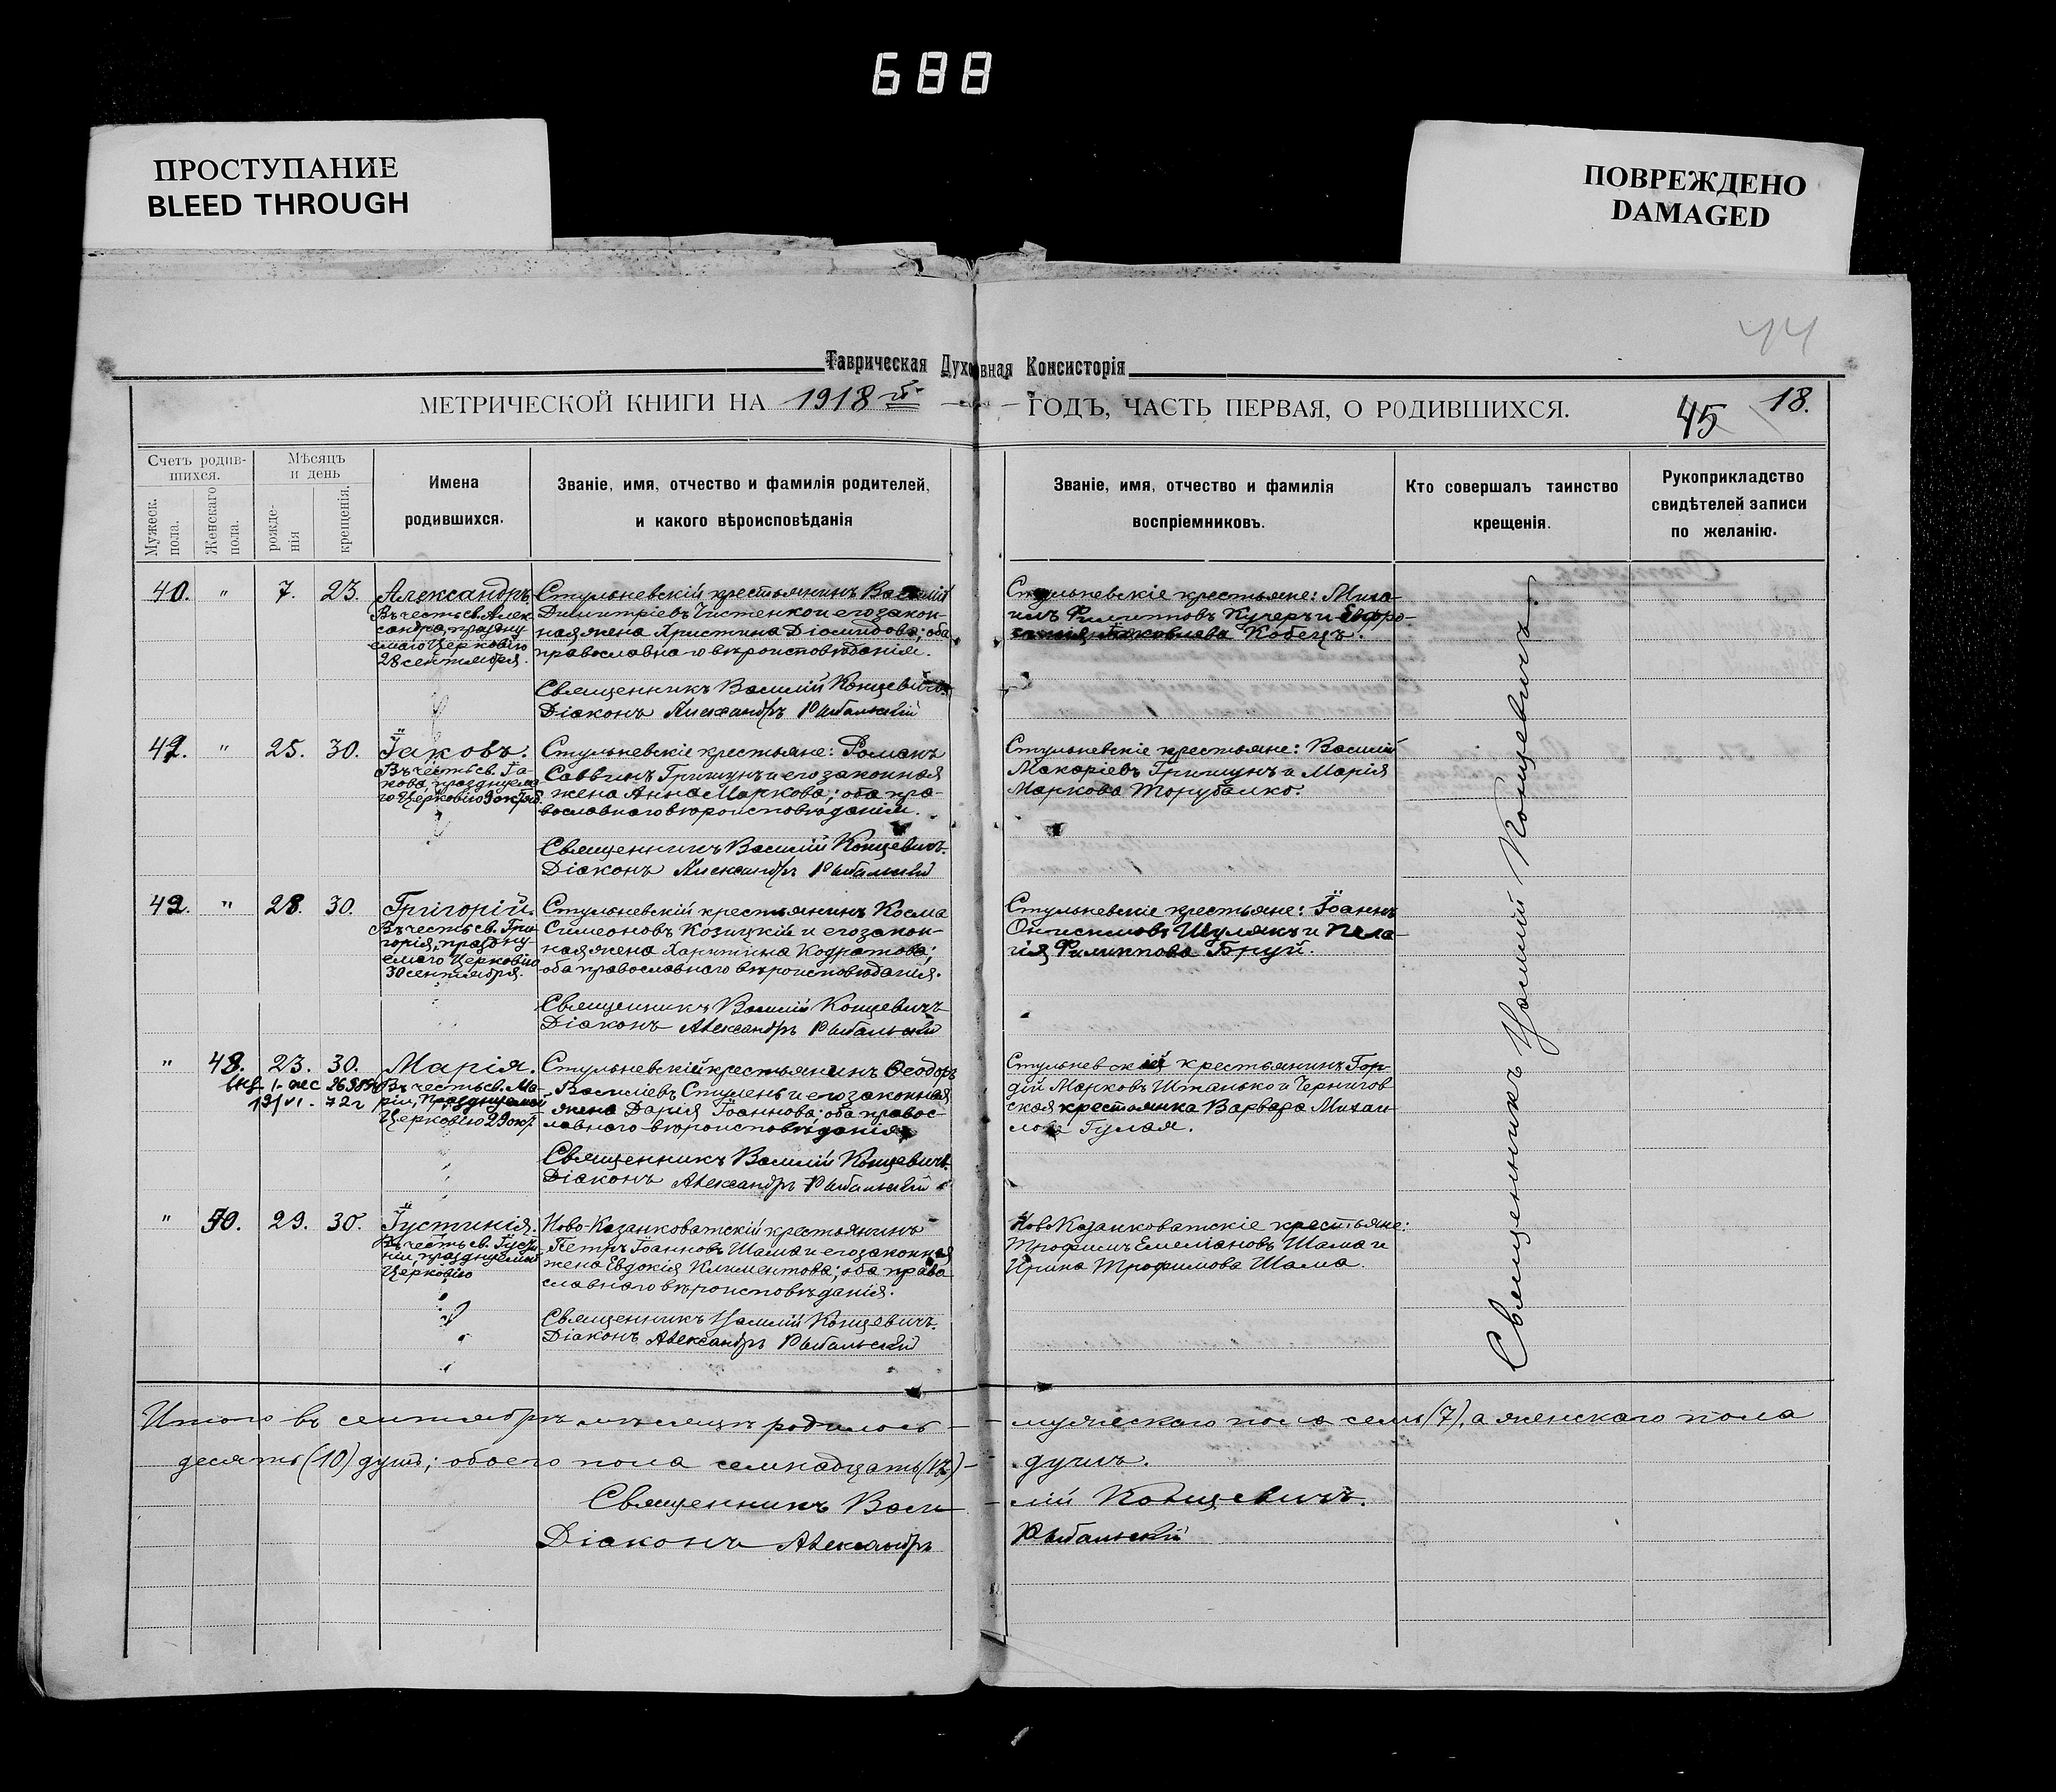 688
ПРОСТУПАНИЕ
BLEED THROUGH
ПОВРЕЖДЕНО
DAMAGED
44
Таврическая Духовная Консисторія
МЕТРИЧЕСКОЙ КНИГИ НА 1918 й ГОДЪ, ЧАСТЬ ПЕРВАЯ, О РОДИВШИХСЯ.
45
18.
Счетъ родив-
шихся.
Мужеск.
пола.
Женскаго
пола.
Мѣсяцъ
и день
рожде-
нія
крещенія.
Имена
родившихся.
Званіе, имя, отчество и фамилія родителей,
и какого вѣроисповѣданія
Званіе, имя, отчество и фамилія
воспріемниковъ.
Кто совершалъ таинство
крещенія.
Рукоприкладство
свидѣтелей записи
по желанію.
40. " 7. 23.
Александръ
Въ честь св. Алек-
сандра, праздну-
емаго Церковію
28 сентября.
Стульневскій крестьянинъ Василій
Димитріевъ Чистенко и его закон-
ная жена Христина Діомидова; оба
православнаго вѣроисповѣданія.
Священникъ Василій Концевичъ
Діаконъ Александръ Рыбальскій
Стульневскіе крестьяне: Миха-
илъ Филипповъ Кучеръ и Евфро-
синія Яковлева Кобецъ.
41. " 25. 30.
Іаковъ.
Въ честь св. Іа-
кова, празднуема-
го Церковію 9 октяб.
Стульневскіе крестьяне: Романъ
Саввинъ Гришунъ и его законная
жена Анна Маркова; оба пра-
вославнаго вѣроисповѣданія.
Священникъ Василій Концевичъ.
Діаконъ Александръ Рыбальскій
Стульневскіе крестьяне: Василій
Макаріевъ Гришунъ и Марія
Маркова Торубалко.
42. " 28. 30.
Григорій.
Въ честь св. Гри-
горія, праздну-
емаго Церковію
30 сентября.
Стульневскій крестьянинъ Косма
Симеоновъ Козицкій и его закон-
ная жена Харитина Кодратова;
оба православнаго вѣроисповѣданія.
Священникъ Василій Концевичъ
Діаконъ Александръ Рыбальскій
Стульневскіе крестьяне: Іоаннъ
Онисимовъ Шулякъ и Пела-
гія Филиппова Бруй.
" 49. 23. 30.
Марія.
Въ честь св. Ма-
ріи, празднуемой
Церковію 29 окт.
13/VI - 72 г
Стульневскій крестьянинъ Ѳеодоръ
Василіевъ Ступень и его законная
жена Дарія Іоаннова; оба правос-
лавнаго вѣроисповѣданія.
Священникъ Василій Концевичъ.
Діаконъ Александръ Рыбальскій
Стульневскій крестьянинъ Гор-
дій Марковъ Штанько и Чернигов
ская крестьянка Варвара Михаи-
лова Гулая.
" 50. 29. 30.
Іустинія.
Въ честь св. Іусти-
ніи, празднуемой
Церковію
Ново-Казанковатскій крестьянинъ
Петръ Іоанновъ Шама и его законная
жена Евдокія Климентова; оба право
славнаго вѣроисповѣданія.
Священникъ Василій Концевичъ.
Діаконъ Александръ Рыбальскій
Ново-Казанковатскіе крестьяне:
Трофимъ Емеліановъ Шама и
Ирина Трофимова Шама.
Священникъ Василій Концевичъ.
Итого въ сентябрѣ мѣсяцѣ родилось - мужескаго пола семь (7), а женскаго пола
десять (10) душъ; обоего пола семнадцать (17) - душъ.
Священникъ Василій Концевичъ.
Діаконъ Александръ Рыбальскій